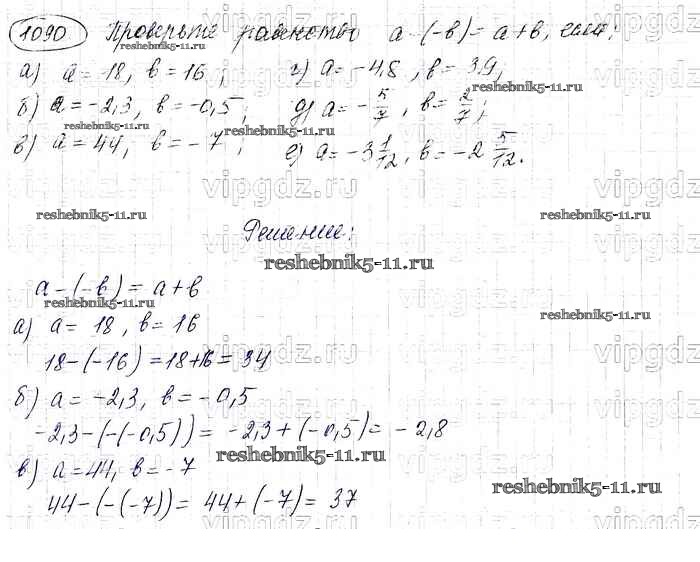 1090 Проверьте равенство a-(-в)=a+в, если:
а) a=-18, в=16; г) a=-4,8, в=3,9;
б) a=-2,3, в=-0,5; д) a=-5/7, в=2/7;
в) a=44, в=-7; е) a=-3 1/12, в=-2 5/12.
Решение:
a-(-в)=a+в
а) a=18, в=16
18-(-16)=18+16=34
б) a=-2,3, в=-0,5
-2,3-(-(-0,5))=-2,3+(-0,5)=-2,8
в) a=44, в=-7
44-(-(-7))=44+(-7)=37
reshebnik5-11.ru
vipgdz.ru